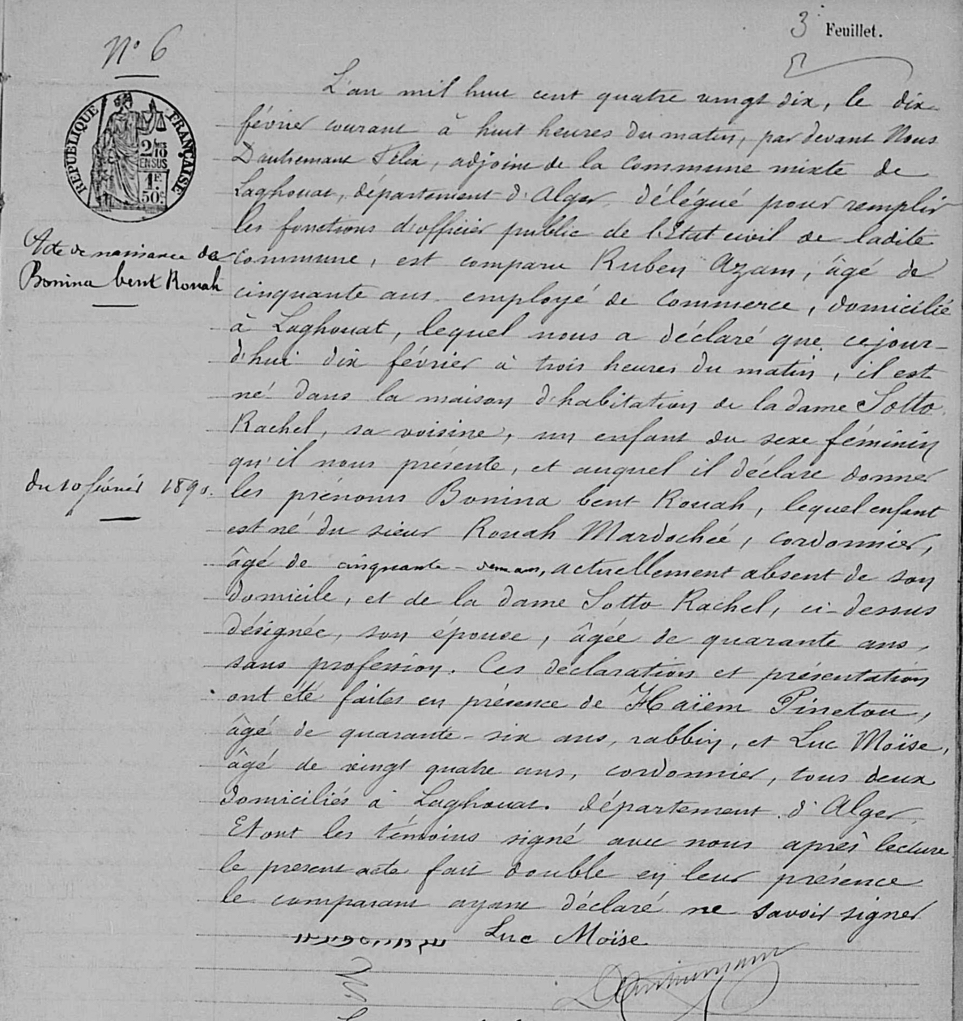 3 Feuillet.
N° 6
RÉPUBLIQUE FRANÇAISE
2/10
EN SUS
1F
50c
Acte de naissance de
Bonina bent Rouah
du 10 février 1890.
L'an mil huit cent quatre vingt dix, le dix
février courant à huit heures du matin, par devant Nous
Dautremant Félix, adjoint de la commune mixte de
Laghouat, département d'Alger, délégué pour remplir
les fonctions d'officier public de l'Etat civil de ladite
Commune, est comparu Ruben Azam, âgé de
cinquante ans employé de commerce, domicilié
à Laghouat, lequel nous a déclaré que cejour-
d'hui dix février à trois heures du matin, il est
né dans la maison d'habitation de la dame Sotto
Rachel, sa voisine, un enfant du sexe féminin
qu'il nous présente, et auquel il déclare donner
les prénoms Bonina bent Rouah, lequel enfant
est né du sieur Rouah Mardochée, cordonnier,
âgé de cinquante- ans, actuellement absent de son
domicile, et de la dame Sotto Rachel, ci-dessus
désignée, son épouse, âgée de quarante ans,
sans profession. Ces déclaration et présentation
ont été faites en présence de Haïem Pinetou,
âgé de quarante-six ans, rabbin, et Luc Moïse,
âgé de vingt quatre ans, cordonnier, tous deux
domiciliés à Laghouat. département d'Alger.
Et ont les témoins signé avec nous après lecture
le present acte fait double en leur présence
le comparant ayant déclaré ne savoir signer
Luc Moïse